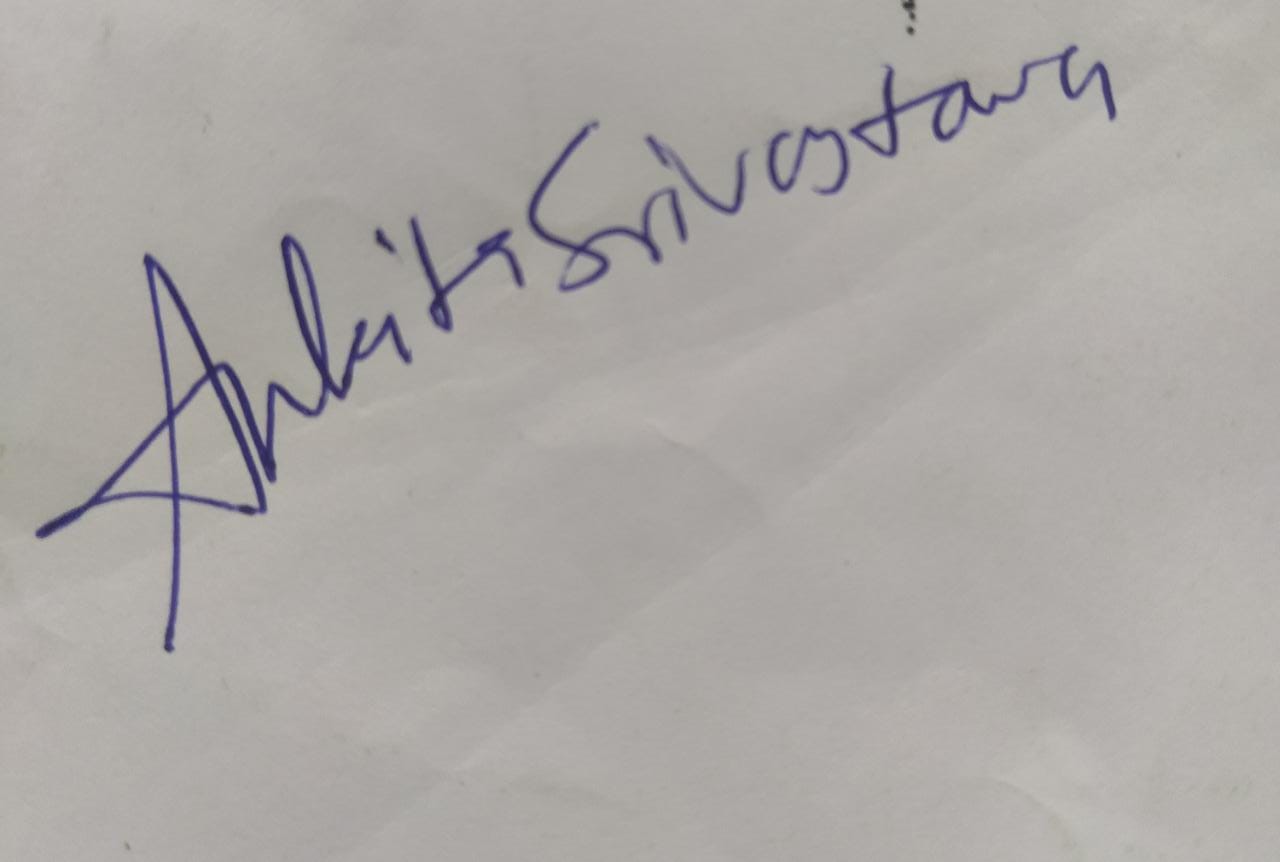 Ankita Srivastava